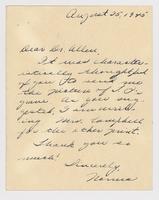 August 25, 1945
Dear Dr. Allen,
It was character-
istically thoughtful
of you to send me
the picture of
As you sug-
gested, I am
ing Mrs. Campbell
for the other print.
Thank you so
much!
Sincerely,
Norma